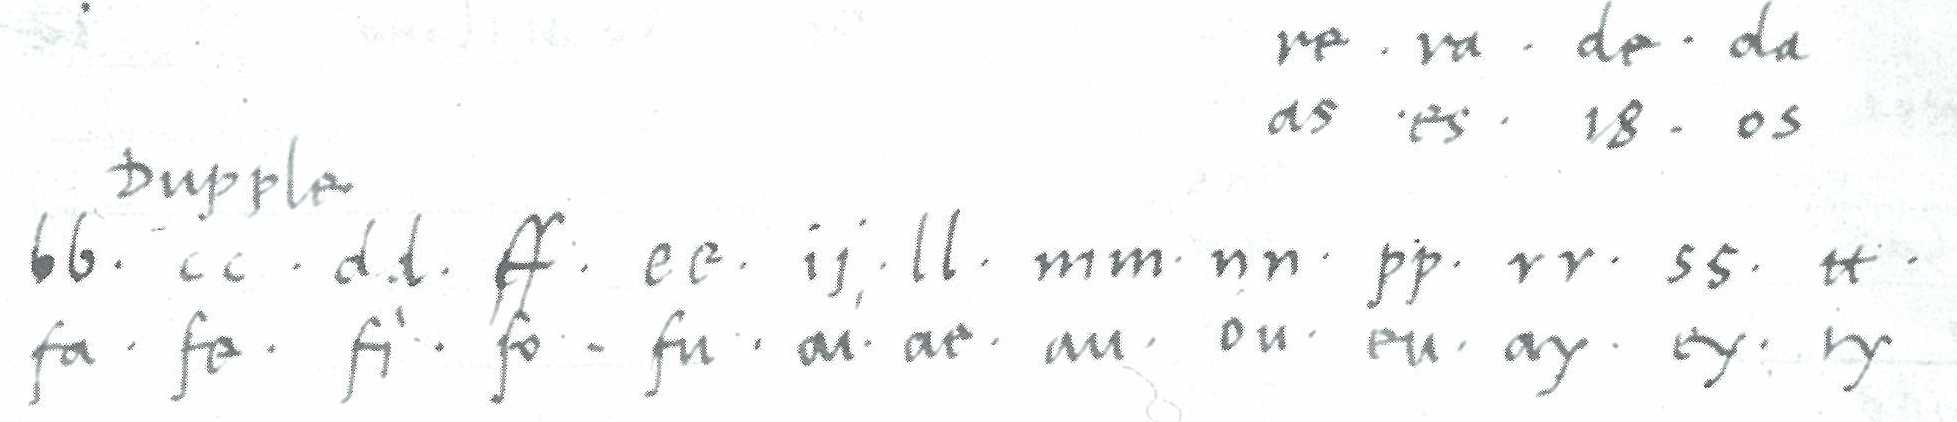 re · ra · de · da
as · es · 18 · os
Dupple
bb · cc · dd · ff · ee · ij · ll · mm · nn · pp · rr · ss · tt ·
fa · fe · fi · fo · fu · ai · ae · au · ou · eu · ay · ey · iy